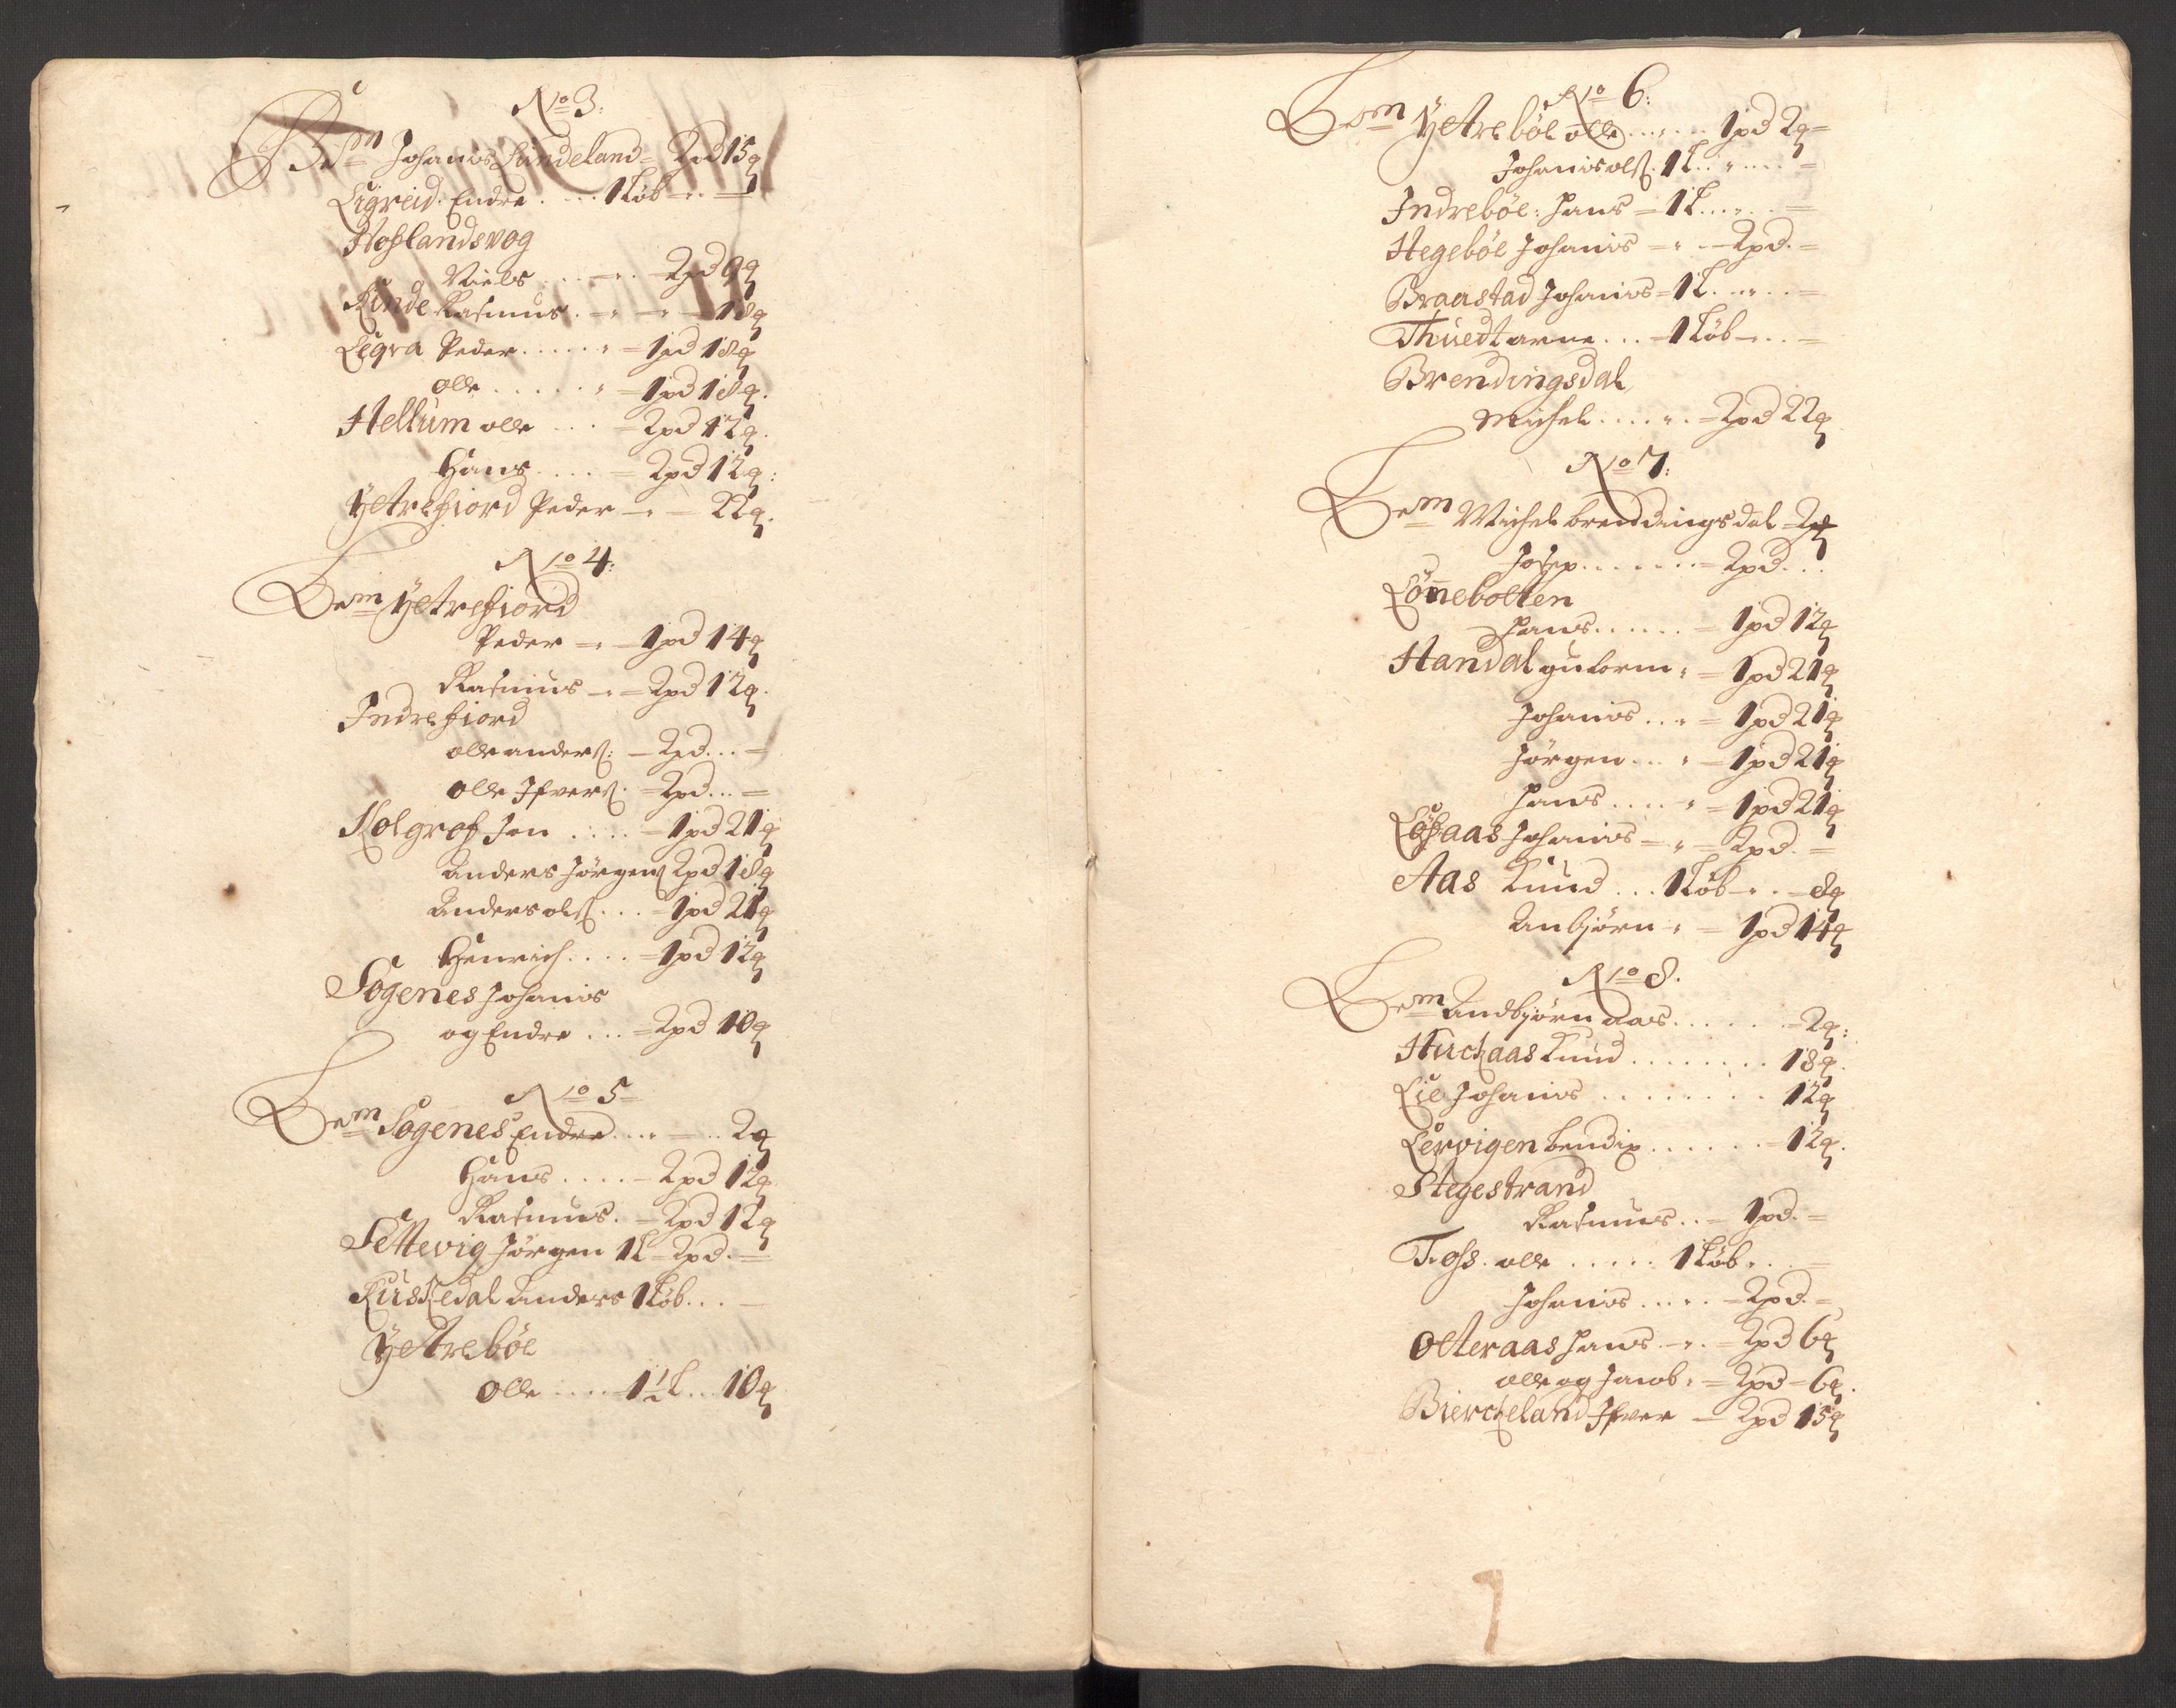 No 3:
Dem Johanis Lundeland = 2pd 15q
Ligreid. Endre . . . . 1 Løb
Hoflandsvog
Niels . . . . . 2pd 9q
Kinde Rasmus . . . 18q
Legra Peder . . . . . 1pd 18q
Olle . . . . . 1pd 18q.
Hellum olle . . . 2pd 12q.
Hans . . . . = 2pd 12q:
Ÿttrefiord Peder 22q.
No 4:
Dem Ÿttrefiord
Peder 1pd 14q
Rasmus 2pd 12q.
Indrefiord
olle anders: 2pd . . .
Olle Ifvers. 2pd . . .
Kolgrof Jon . . . . 1pd 21q
Anders Jørgens 2pd 18q
Anders ols. . . . 1pd 21q
Henrich . . . . 1pd 12q
Søgenes Johanis
og Endre . . . 2pd 10q
No 5
Dem Søgenes Endre . . . . . . 2q
Hans . . . . 2pd 12q
Rasmus. 2pd 12q
Settevig Jørgen 1L 2pd.
Kusledal Anders 1 Løb . . .
Ÿttrebøe
Olle . . . . 1 1/2 L . . . 10q
No 6:
Dem Ÿttrebøe olle . . . . . 1pd 2q
Johanis ols. 1L . . . . .
Indrebøe: Hans = 1L . . . .
Hegebøe Johanis 2pd.
Braastad Johanis = 1L . . . .
Thuedt arne . . . 1 Løb . .
Brendingsdal
Michel . . . . . 2pd 22q
No 7:
Dem Michel brendingsdal 2q
Josep . . . . . . . 2pd . . .
Lønebotten
Hans . . . . . . 1pd 12q
Handal gulorm = 1pd 21q
Johanis . . . = 1pd 21q
Jørgen . . . = 1pd 21q
Hans . . . . = 1pd 21q
Løfaas Johanis = 2pd.
Aas Knud . . . 1 Løb . . 8q
Anbjørn = 1pd 14q
No 8.
Dem Andbjørn aas . . . . . . 2q:
Huchaas Knud . . . . . . . . 18q.
Lie Johanis . . . . . . . . 12q
Lervigen bendix . . . . . . 12q.
Stegestrand
Rasmus . . 1pd.
Foss. olle . . . . . 1 Løb . . .
Johanis . . . . . 2pd.
Otteraas Hans . . 2pd 6q
olle og Jacob = 2pd 6q.
Biercheland Ifver 2pd 15q